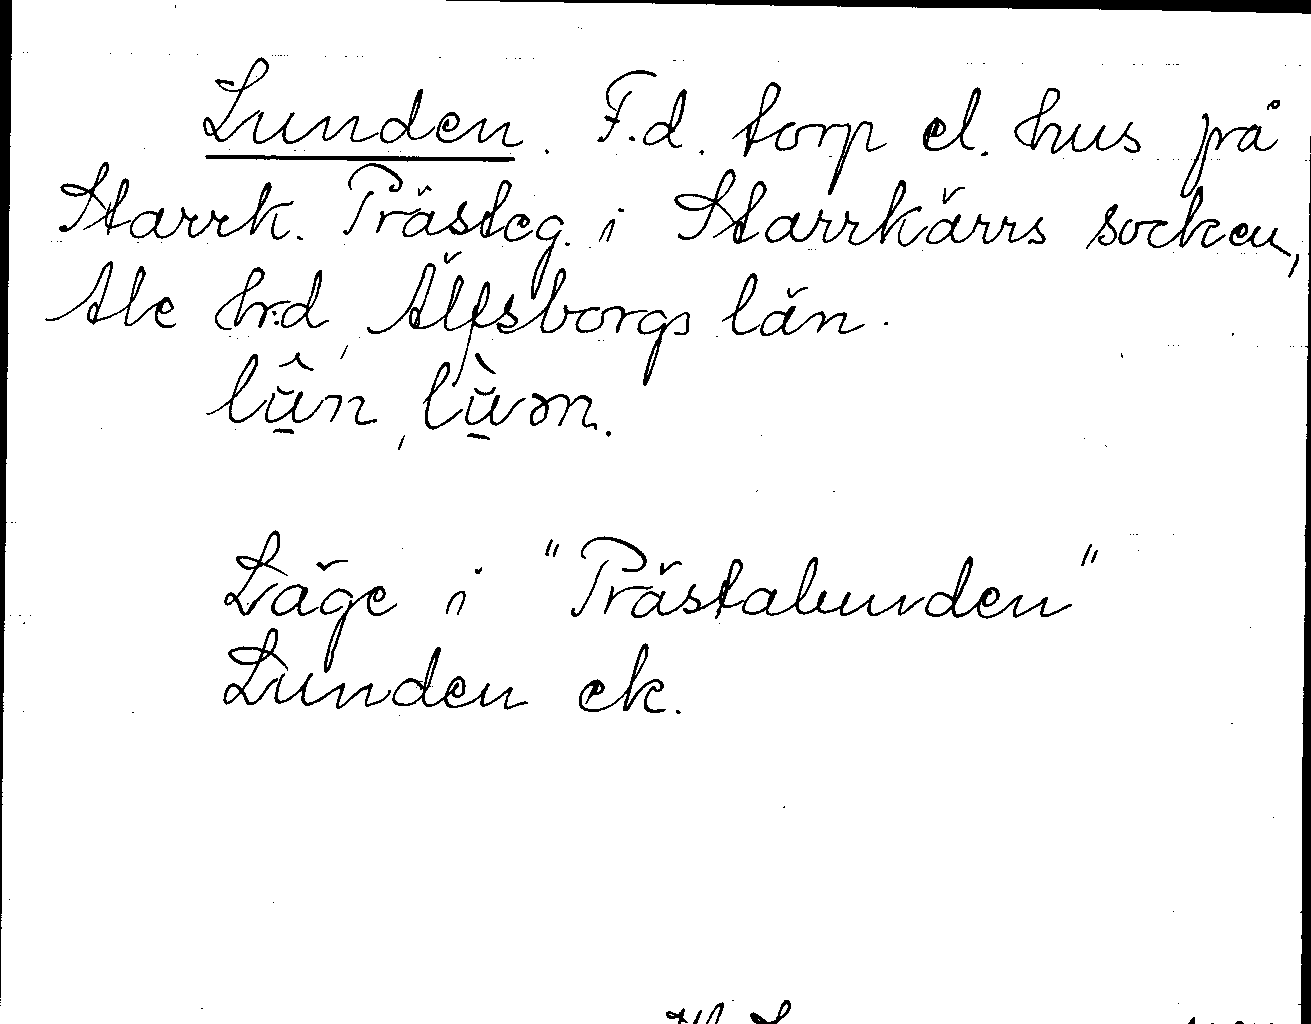 Lunden. F.d. torp el. hus på
Starrk. Prästeg. i Starrkärrs socken,
Ale hrd, Älfsborgs län.
lû̱n, lù̱ən.
Läge i "Prästalunden"
Lunden ek.